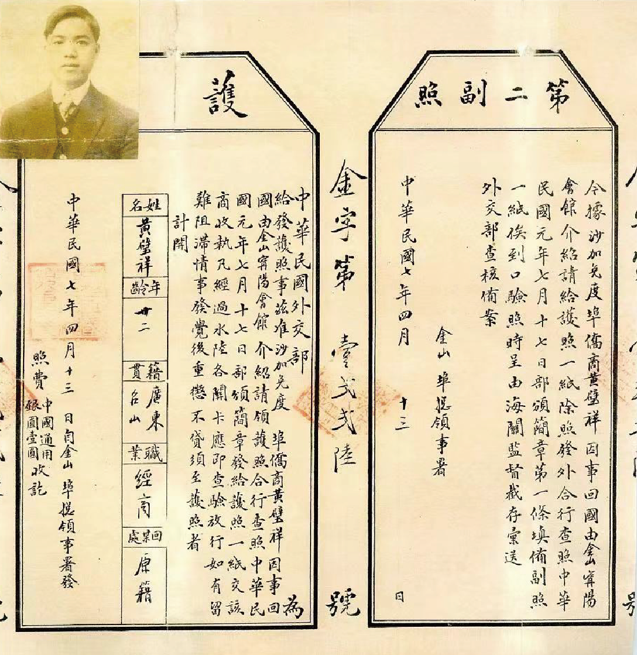 第二副照
今據沙加免度埠僑商黃璧祥因事回國由金山甯陽
會館介紹請給護照一紙除照發外合行查照中華
民國元年七月十七日部頒簡章第一條填備副照
一紙俟到口驗照時呈由海關監督截存彙送
外交部查核備案
金山埠總領事署
中華民國七年四月十三日
金字第壹弍弍陸號
護
中華民國外交部為
給發護照事茲准沙加免度埠僑商黃璧祥因事回
國由金山甯陽會館介紹請領護照合行查照中華民
國元年七月十七日部頒簡章發給護照一紙交該
商收執凡經過水陸各關卡應即查驗放行如有留
難阻滯情事發覺後重懲不貸須至護照者
計開
姓名 黃璧祥
年齡 廿二
籍貫 廣東台山
職業 經商
回梁處 原籍
中華民國七年四月十三日自金山埠總領事署發
照費中國通用銀圓壹圓收訖